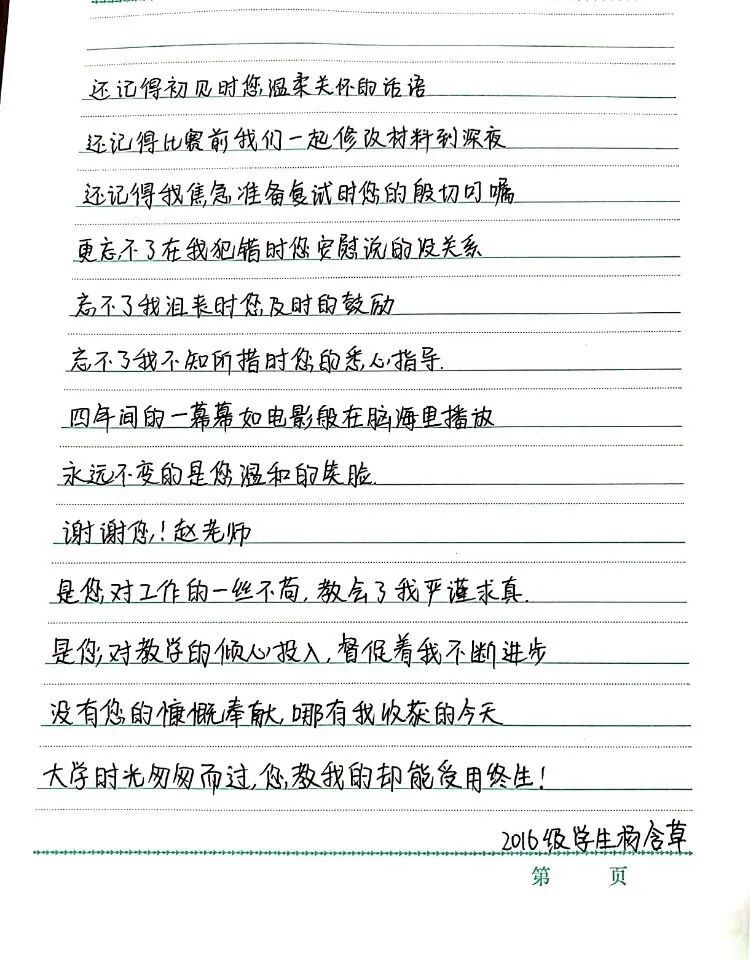 还记得初见时您温柔关怀的话语
还记得比赛前我们一起修改材料到深夜
还记得我焦急准备复试时您的殷切叮嘱
更忘不了在我犯错时您安慰说的没关系
忘不了我沮丧时您及时的鼓励
忘不了我不知所措时您的悉心指导.
四年间的一幕幕如电影般在脑海里播放
永远不变的是您温和的笑脸.
谢谢您!赵老师
是您对工作的一丝不苟,教会了我严谨求真.
是您对教学的倾心投入,督促着我不断进步
没有您的慷慨奉献,哪有我收获的今天
大学时光匆匆而过,您教我的却能受用终生!
2016级学生杨含草
第 页